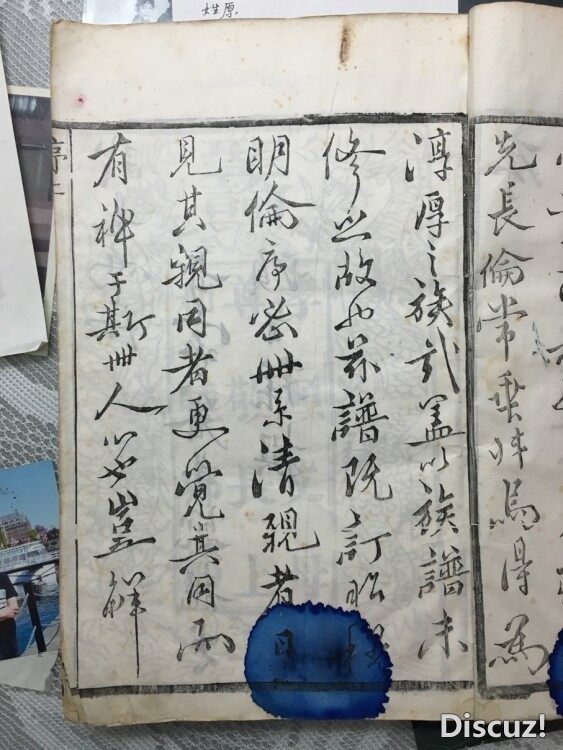 姓原
先長倫常乖舛烏得為
淳厚之族式蓋以族譜未
修之故也茲譜既訂昭
明倫序密世系清親者
見其親同者更覺其同而
有裨于斯世人心也豈鮮
序
Discuz!